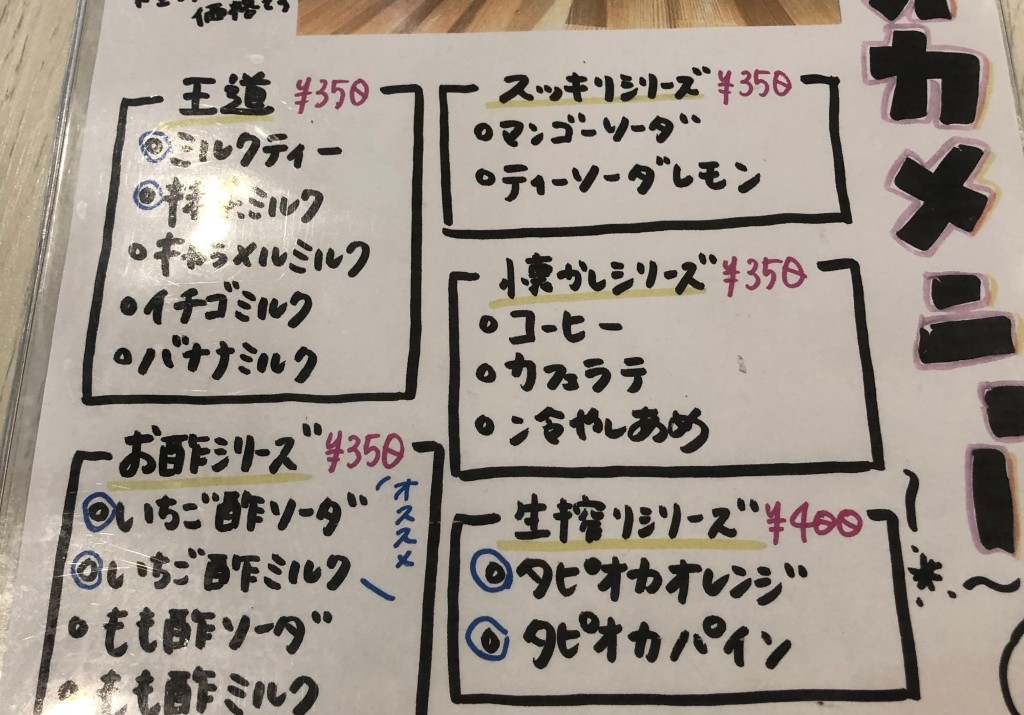 価格そう
オカメニュー
王道 ¥350
ミルクティー
抹茶ミルク
キャラメルミルク
イチゴミルク
バナナミルク
お酢シリーズ ¥350
いちご酢ソーダ
いちご酢ミルク
オススメ
もも酢ソーダ
もも酢ミルク
スッキリシリーズ ¥350
マンゴーソーダ
ティーソーダレモン
懐かしシリーズ ¥350
コーヒー
カフェラテ
冷やしあめ
生搾りシリーズ ¥400
タピオカオレンジ
タピオカパイン